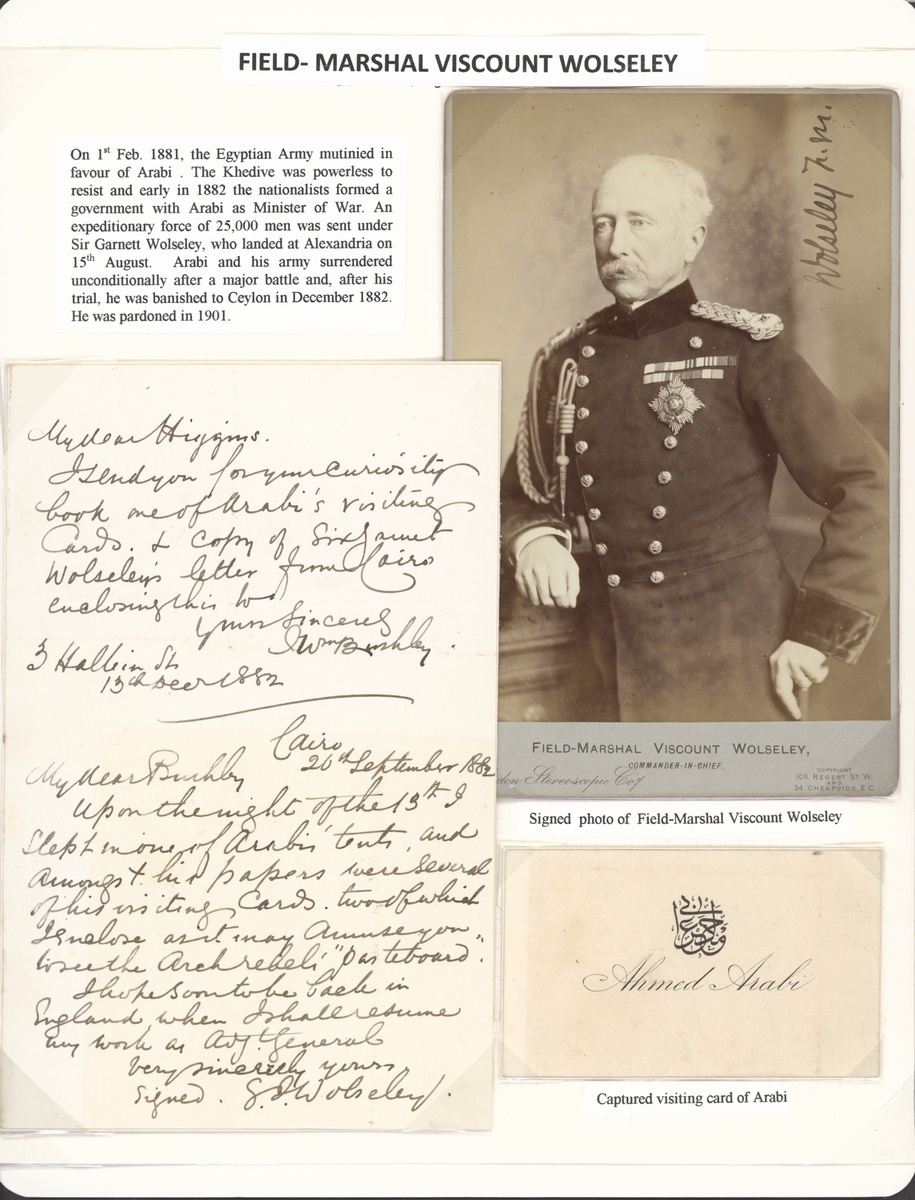 FIELD- MARSHAL VISCOUNT WOLSELEY
On 1st Feb. 1881, the Egyptian Army mutinied in
favour of Arabi . The Khedive was powerless to
resist and early in 1882 the nationalists formed a
government with Arabi as Minister of War. An
expeditionary force of 25,000 men was sent under
Sir Garnett Wolseley, who landed at Alexandria on
15th August. Arabi and his army surrendered
unconditionally after a major battle and, after his
trial, he was banished to Ceylon in December 1882.
He was pardoned in 1901.
Wolseley F.M.
My dear Higgins.
I send you for your curiosity
book one of Arabi's visiting
Cards. & copy of Sir Garnet
Wolseley's letter from Cairo
enclosing this &
Yours Sincerely
Bushley.
3 Halkin St.
13th Decr 1882
Cairo
20th September 1882
My dear Bushley
Upon the night of the 13th I
slept in one of Arabi's tents, and
amongst his papers were several
of his visiting Cards. two of which
I enclose as it may amuse you
to see the Arch rebels' "pasteboard.
I hope soon to be back in
England, when I shall resume
my work as Adj. General
Very sincerely yours,
Signed. G.J. Wolseley.
FIELD-MARSHAL VISCOUNT WOLSELEY,
COMMANDER-IN-CHIEF.
Stereoscopic Coy.
COPYRIGHT
106, REGENT ST. W.
AND
54 CHEAPSIDE, E.C.
Signed photo of Field-Marshal Viscount Wolseley
احمد عرابي
Ahmed Arabi
Captured visiting card of Arabi